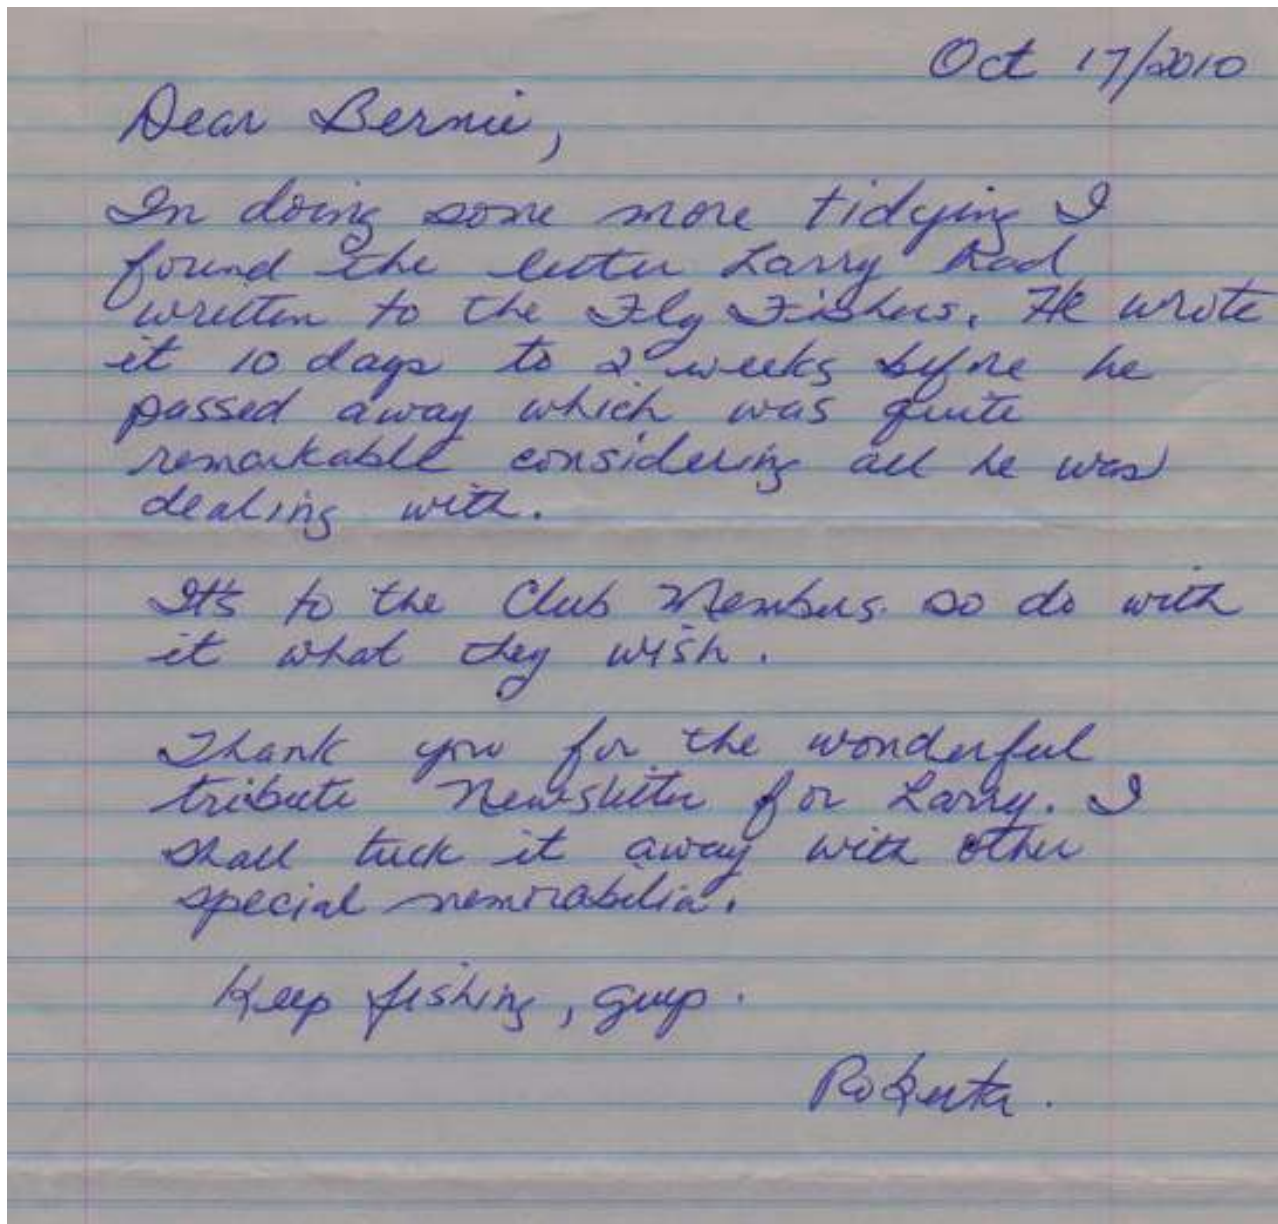 Oct 17/2010
Dear Bernie,
In doing some more tidying I
found the letter Larry had
written to the Fly Fishers. He wrote
it 10 days to 2 weeks before he
passed away which was quite
remarkable considering all he was
dealing with.
It's to the Club Members so do with
it what they wish.
Thank you for the wonderful
tribute Newsletter for Larry. I
shall tuck it away with other
special memorabilia.
Keep fishing, guys.
Roberta.